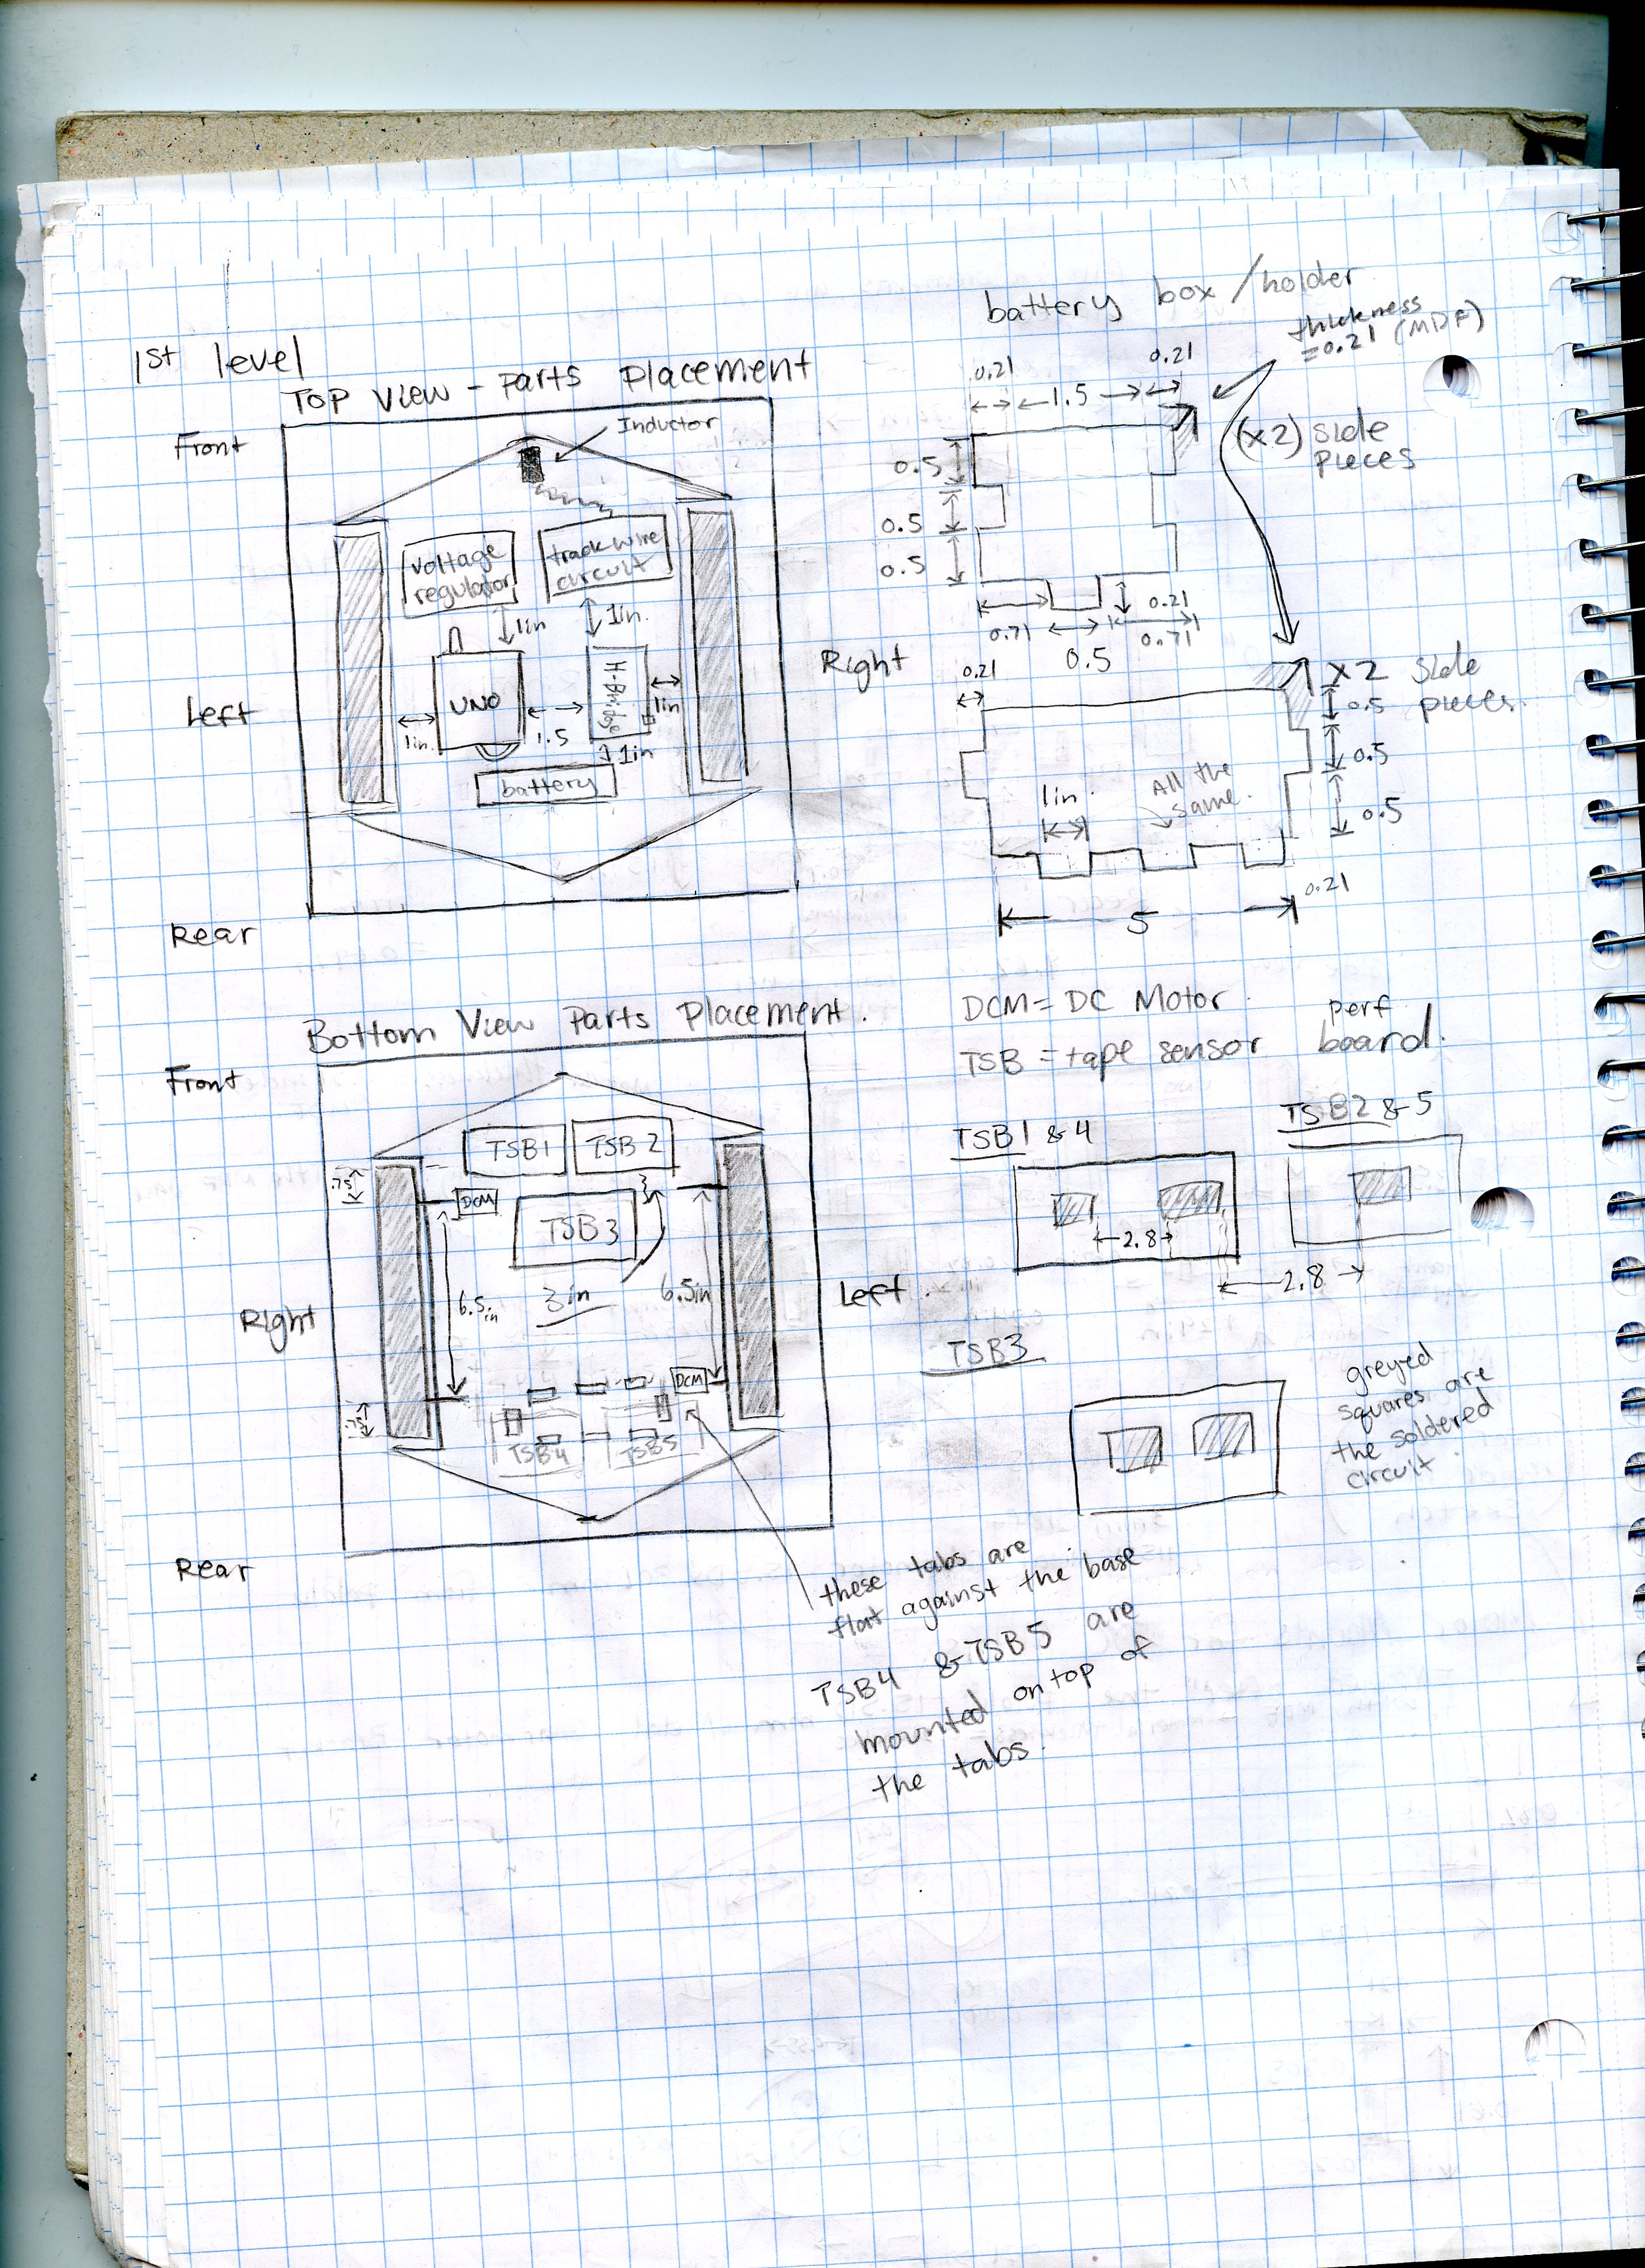 1st level
Top View - Parts Placement
Front
Inductor
voltage
regulator
track wire
circuit
1in
1in.
UNO
H-Bridge
Left
Right
1in.
1.5
1in
1in
battery
Rear
battery box / holder
thickness
=0.21 (MDF)
0.21
0.21
1.5
(x2) side
pieces
0.5
0.5
0.5
0.71
0.5
0.21
0.71
0.21
x2 side
pieces.
0.5
0.5
0.5
1in.
All the
same.
0.21
5
Bottom View Parts Placement.
Front
TSB1
TSB2
.75
DCM
TSB3
3in
6.5in
6.5in
Right
Left.
DCM
.75
TSB4
TSB5
Rear
these tabs are
flat against the base
TSB4 & TSB5 are
mounted on top of
the tabs.
DCM = DC Motor
TSB = tape sensor perf board.
TSB1 & 4
2.8
TSB2 & 5
2.8
TSB3
greyed
squares are
the soldered
circuit.